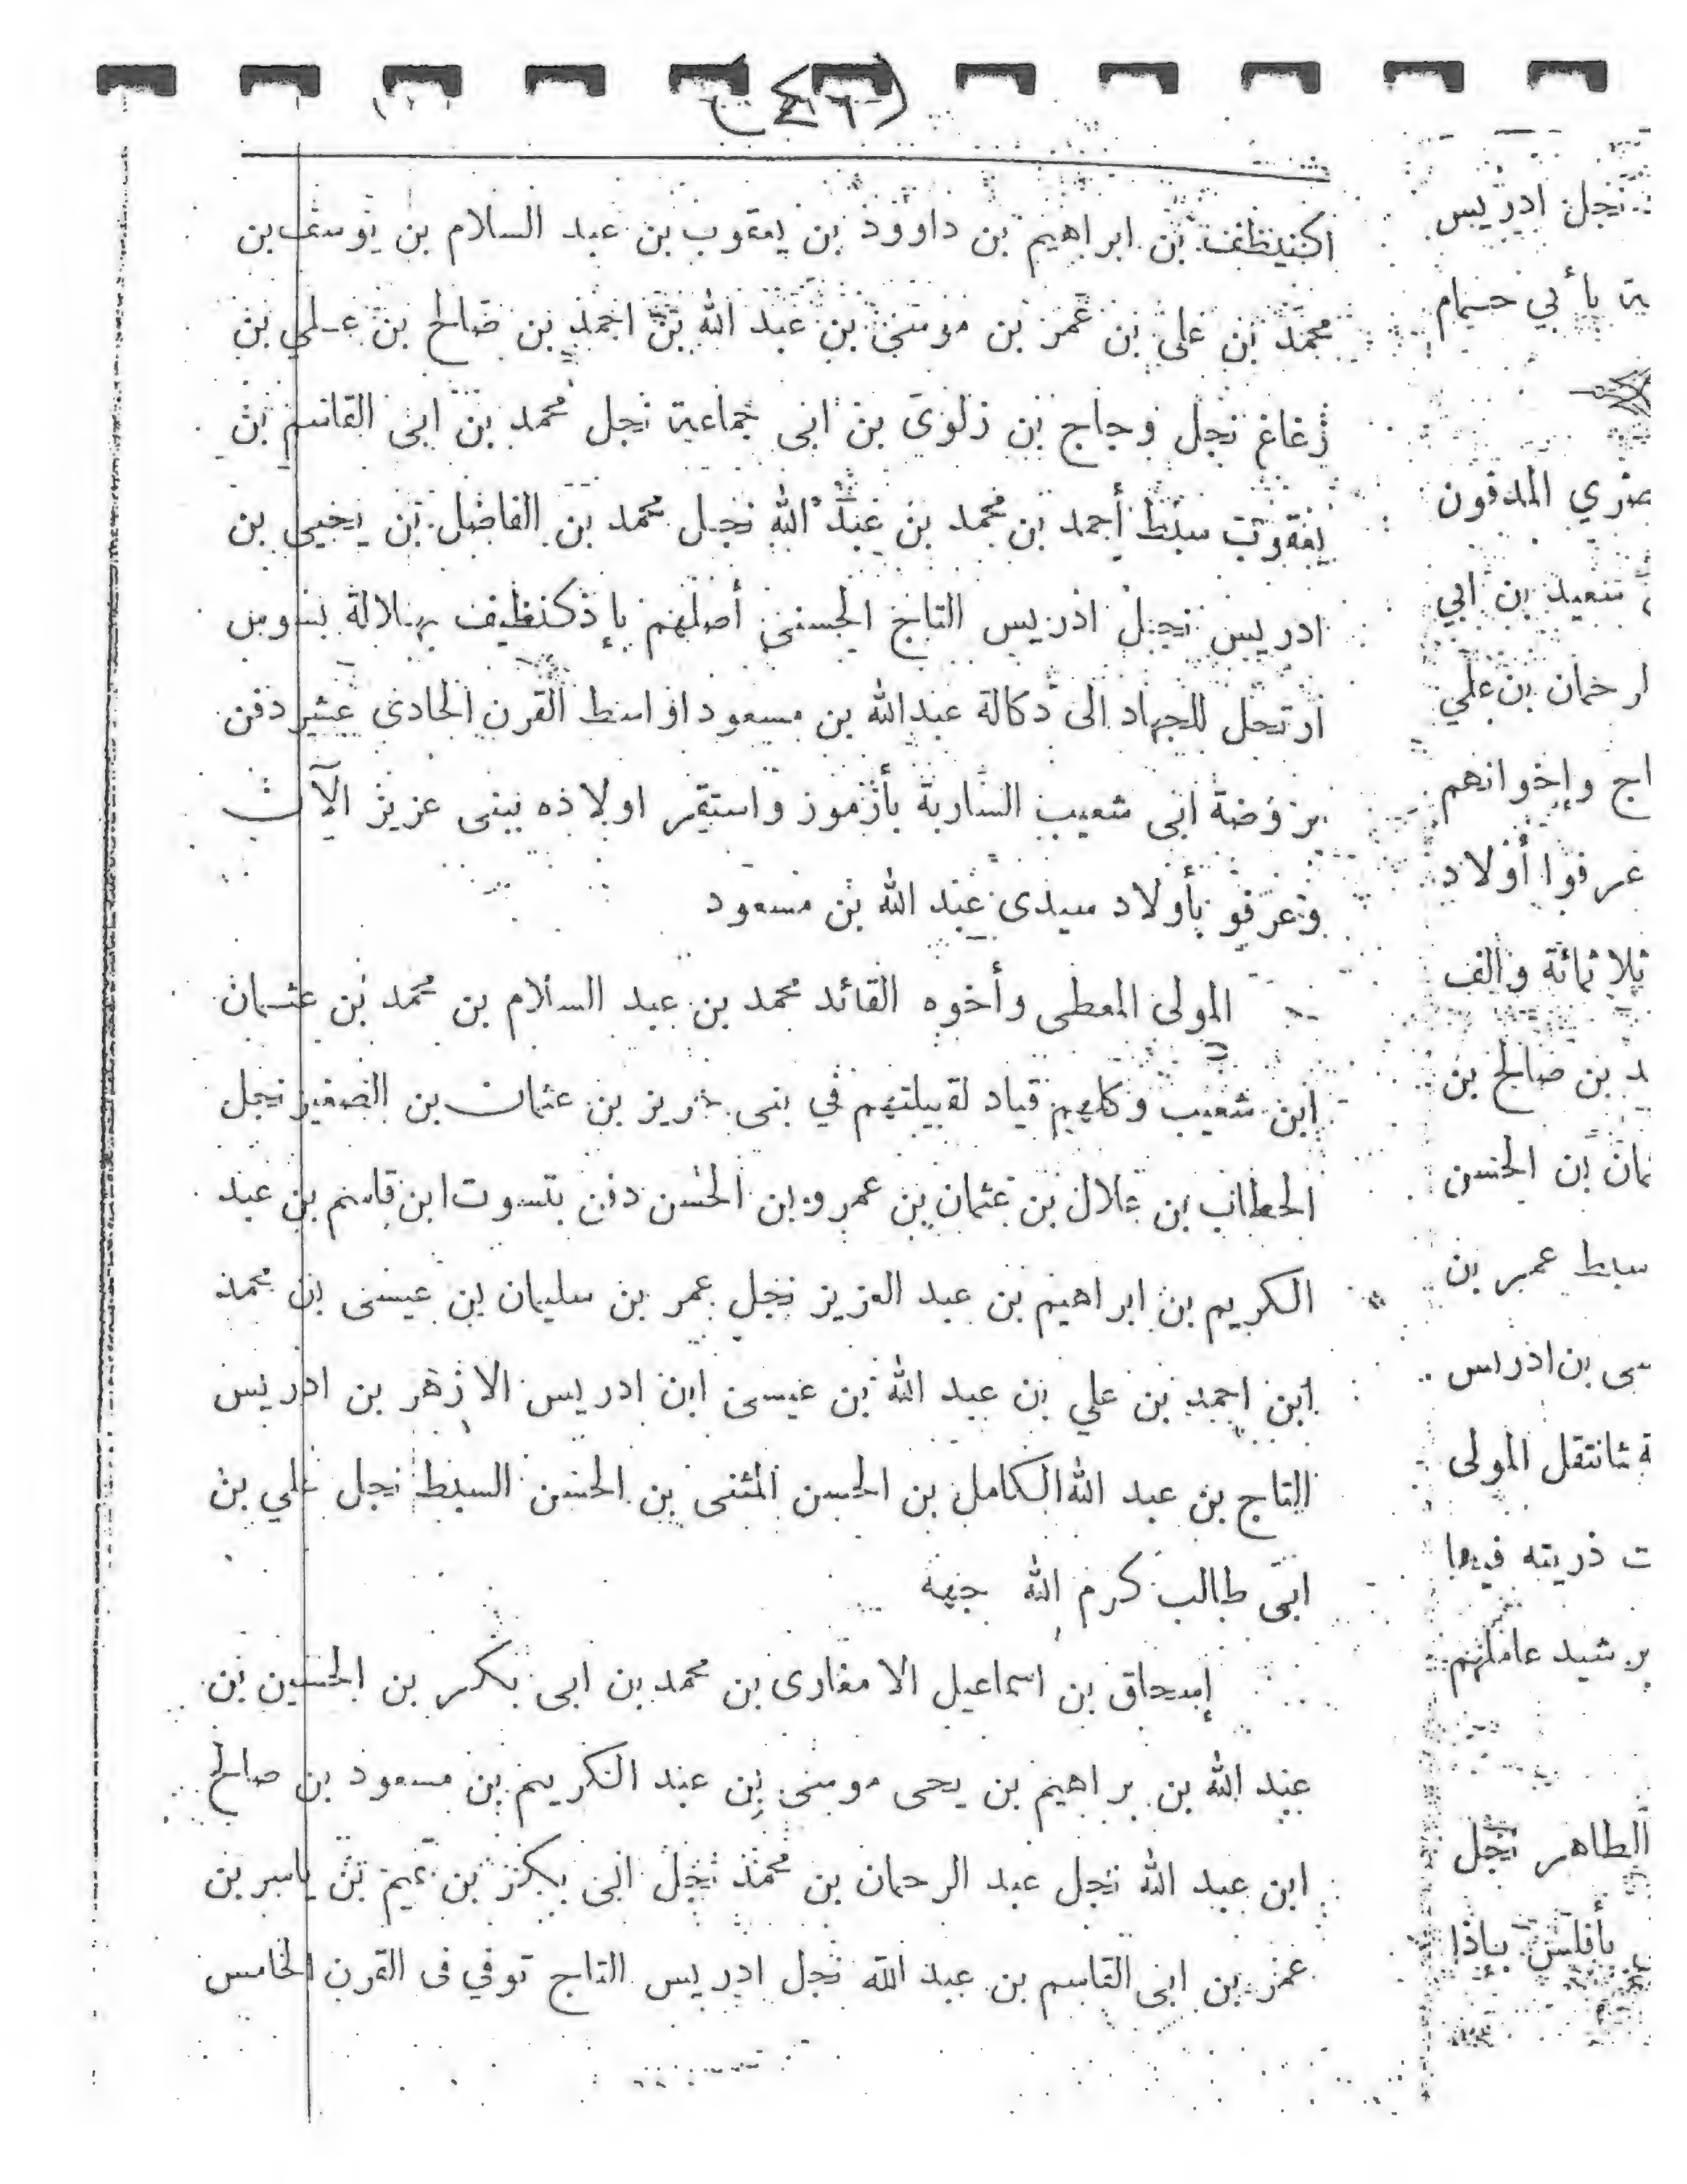 اكنيظف بن ابراهيم بن داوود بن يعقوب بن عبد السلام بن يوسف بن
محمد بن على بن عمر بن موسى بن عبد الله بن احمد بن صالح بن علي بن
زغاغ نجل وجاج بن زلوى بن ابى جماعة نجل محمد بن ابى القاسم بن
يعقوب سبط أحمد بن محمد بن عبد الله نجل محمد بن الفاضل بن يحيى بن
ادريس نجل ادريس التاج الحسنى أصلهم بإذكنظيف بهلالة بسوس
ارتحل للجهاد الى دكالة عبدالله بن مسعود اواسط القرن الحادى عشر دفن
بروضة ابى شعيب السارية بأزمور واستقر اولاده ببنى عزيز الآن
وعرفو بأولاد سيدى عبد الله بن مسعود
المولى المعطى وأخوه القائد محمد بن عبد السلام بن محمد بن عثمان
ابن شعيب وكلهم قياد لقبيلتهم في بنى بن عثمان بن الصغير نجل
الحطاب بن علال بن عثمان بن عمرو بن الحسن دفن بتسوت ابن قاسم بن عبد
الكريم بن ابراهيم بن عبد العزيز نجل عمر بن سليمان بن عيسى بن محمد
ابن احمد بن علي بن عبد الله بن عيسى ابن ادريس الازهر بن ادريس
التاج بن عبد الله الكامل بن الحسن المثنى بن الحسن السبط نجل علي بن
ابى طالب كرم الله جهه
إسحاق بن اسماعيل الامغارى بن محمد بن ابى بكر بن الحسين بن
عبد الله بن براهيم بن يحى موسى بن عبد الكريم بن مسعود بن صالح
ابن عبد الله نجل عبد الرحمان بن محمد نجل ابى بكر بن تميم بن ياسر بن
عمر بن ابى القاسم بن عبد الله نجل ادريس التاج توفي فى القرن الخامس
نجل ادريس
بأبي حسيام
المدفون
سعيد بن ابي
بن علي
وإخوانهم
عرفوا أولاد
ثلاثمائة والف
بن صالح بن
بن الحسن
سبط عمر بن
بن ادريس
المولى
ذريته فيها
عاملهم
الطاهر نجل